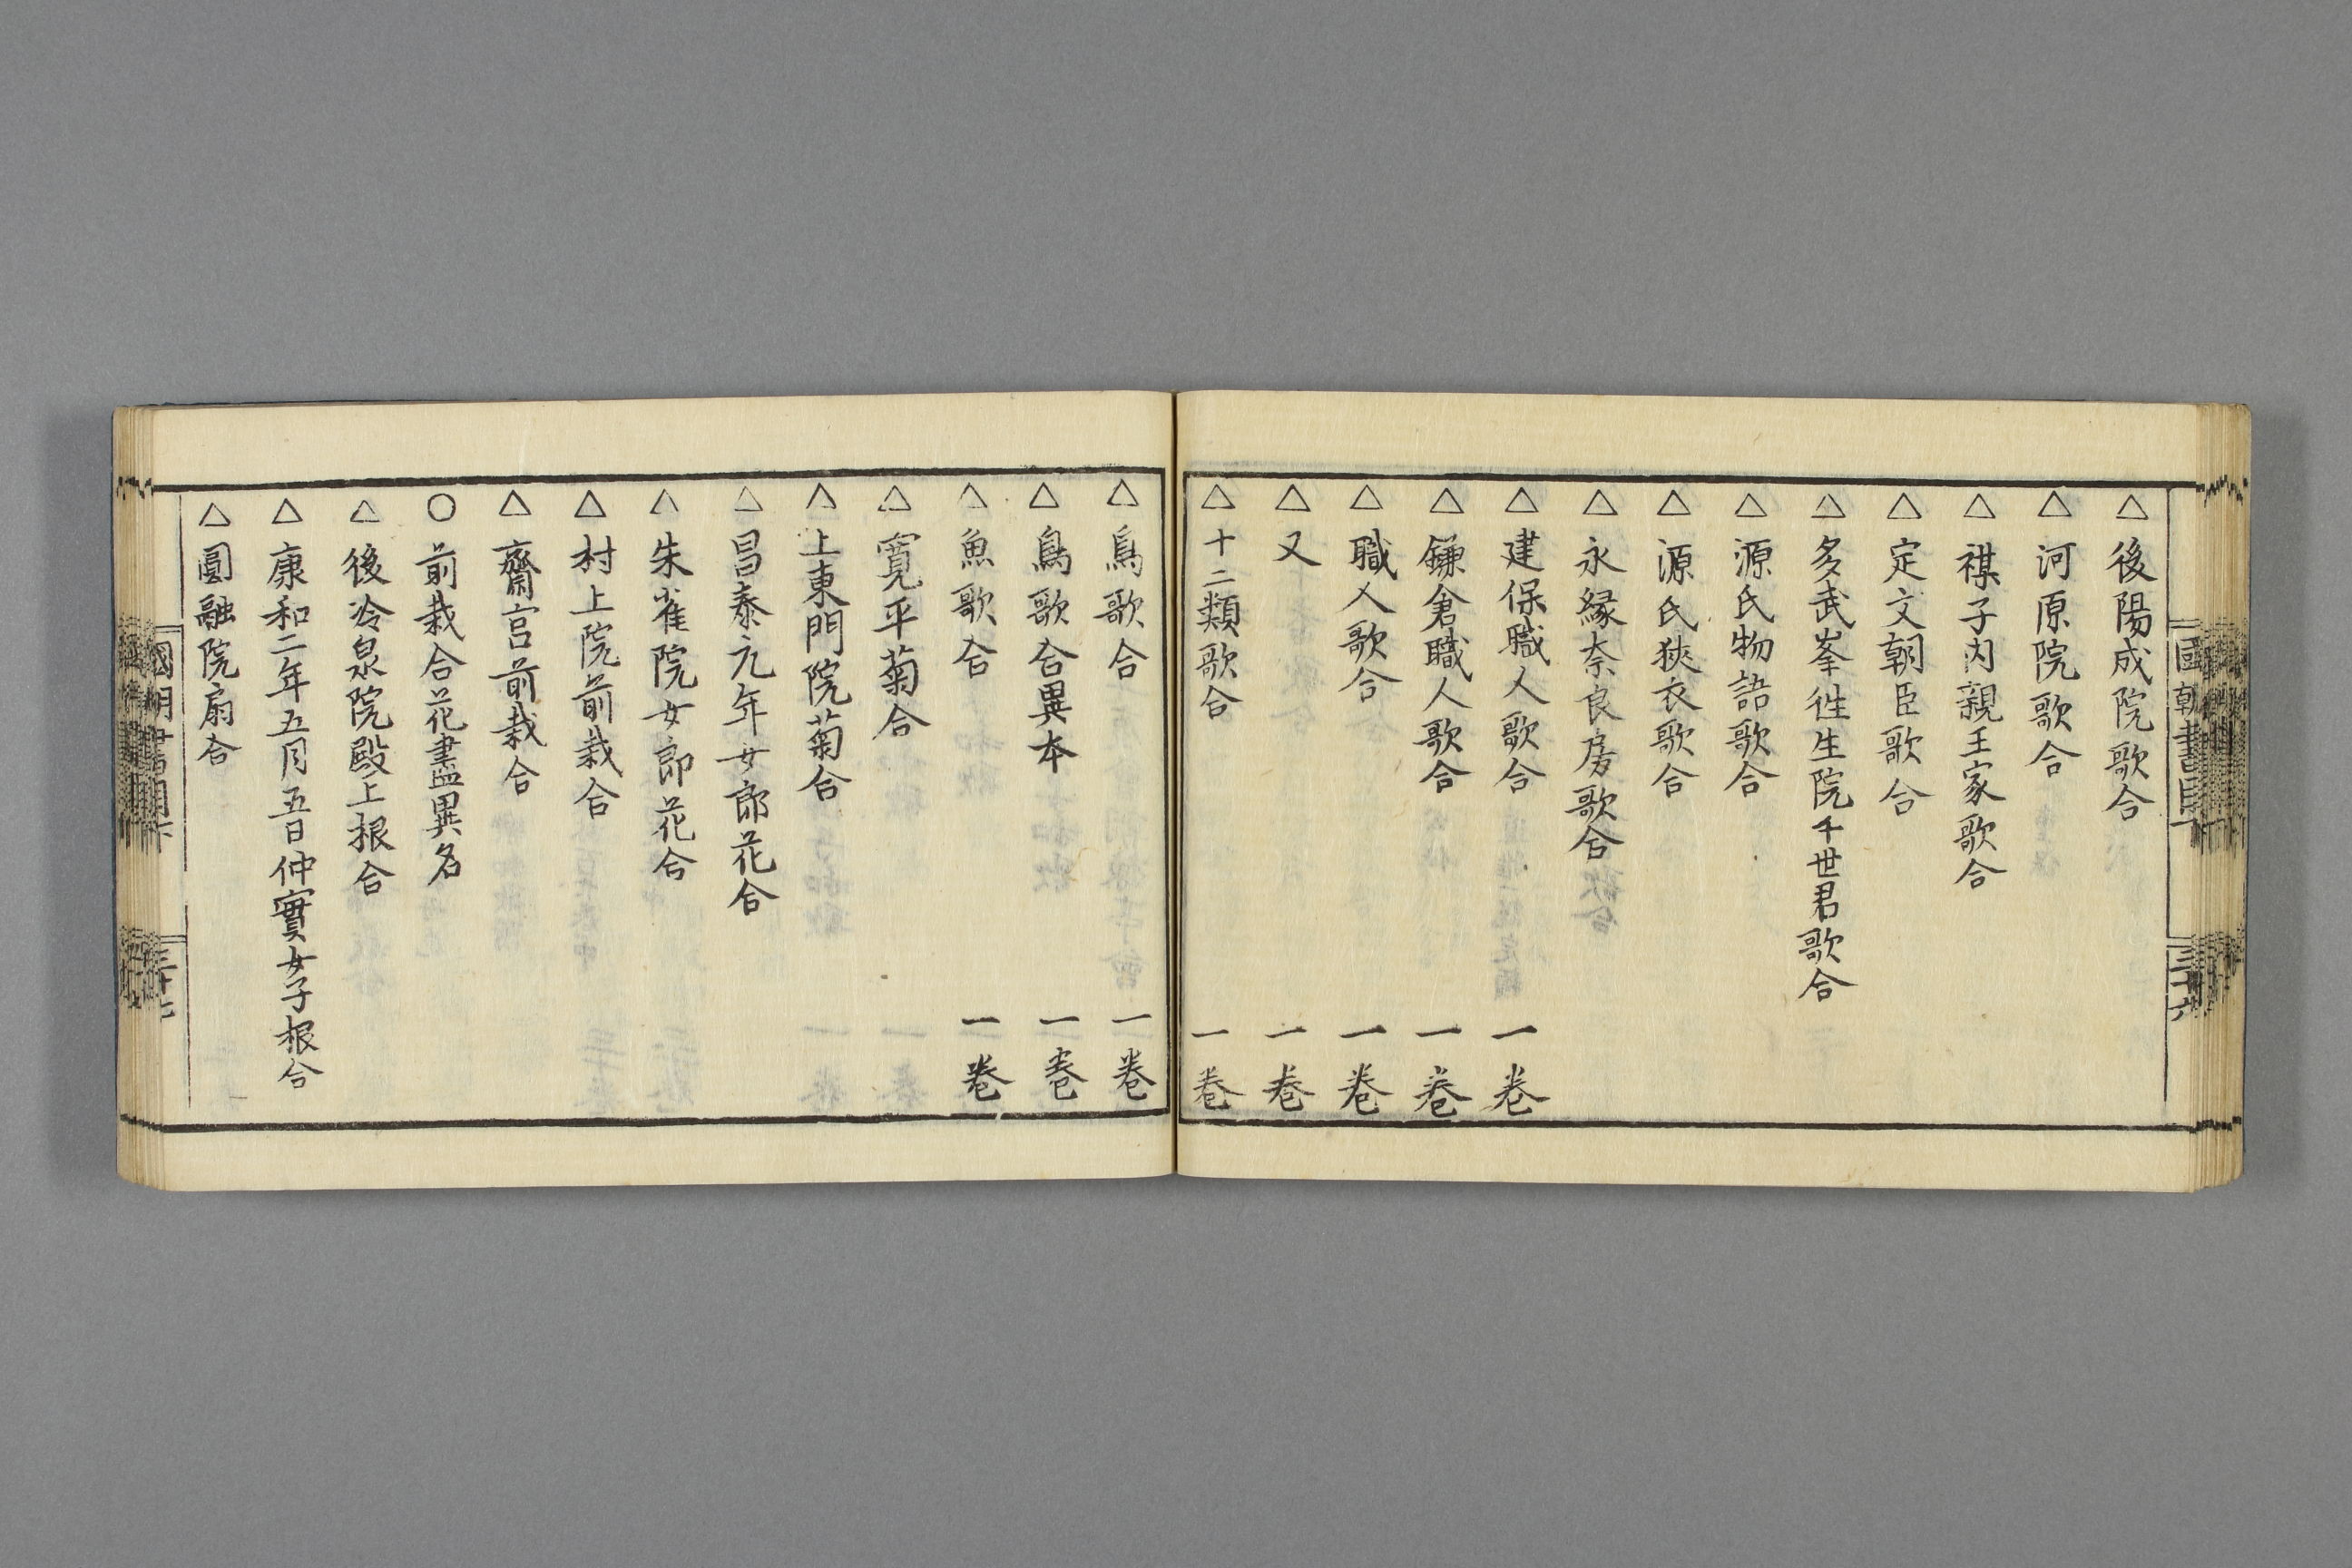 △後陽成院歌合
△河原院歌合
△禖子内親王家歌合
△定文朝臣歌合
△多武峯徃生院千世君歌合
△源氏物語歌合
△源氏狹衣歌合
△永縁奈良房歌合
△建保職人歌合 一卷
△鎌倉職人歌合 一卷
△職人歌合 一卷
△又 一卷
△十二類歌合 一卷
△鳥歌合 一卷
△鳥歌合異本 一卷
△魚歌合 一卷
△寛平菊合
△上東門院菊合
△昌泰元年女郎花合
△朱雀院女郎花合
△村上院前栽合
△齋宮前栽合
○前栽合花盡異名
△後冷泉院殿上根合
△康和二年五月五日仲實女子根合
△圓融院扇合